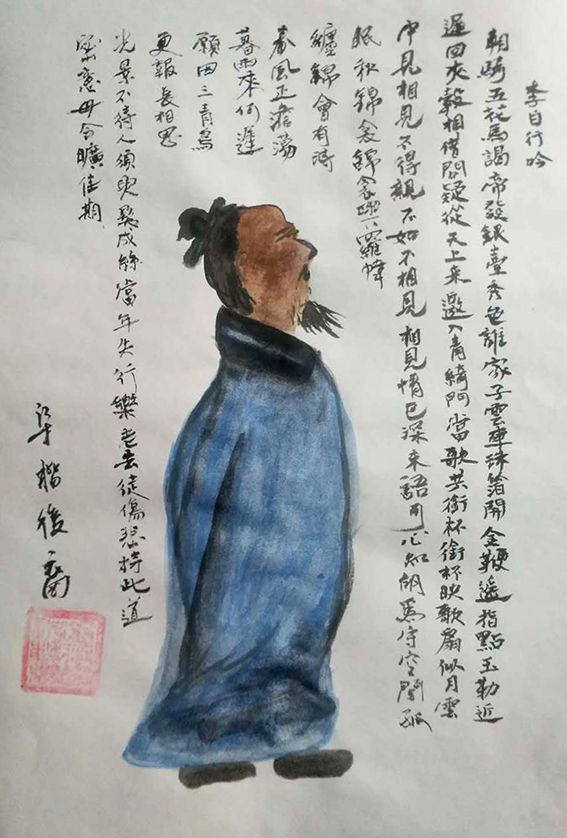 李白行吟
朝騎五花馬謁帝發銀臺秀色誰家子雲車珠箔開金鞭遙指點玉勒近
遲回夾轂相借問疑從天上來邀入青綺門當歌共銜杯銜杯映歌扇似月雲
中見相見不得親不如不相見相見情已深未語可心知胡為守空閨孤
眠秋錦衾錦衾與羅幃
纏錦會有時
春風正澹蕩
暮雨來何遲
願因三青鳥
更報長相思
光景不待人須臾髮成絲當年失行樂老去徒傷悲持此道
密意毋令曠佳期
梁楷後裔